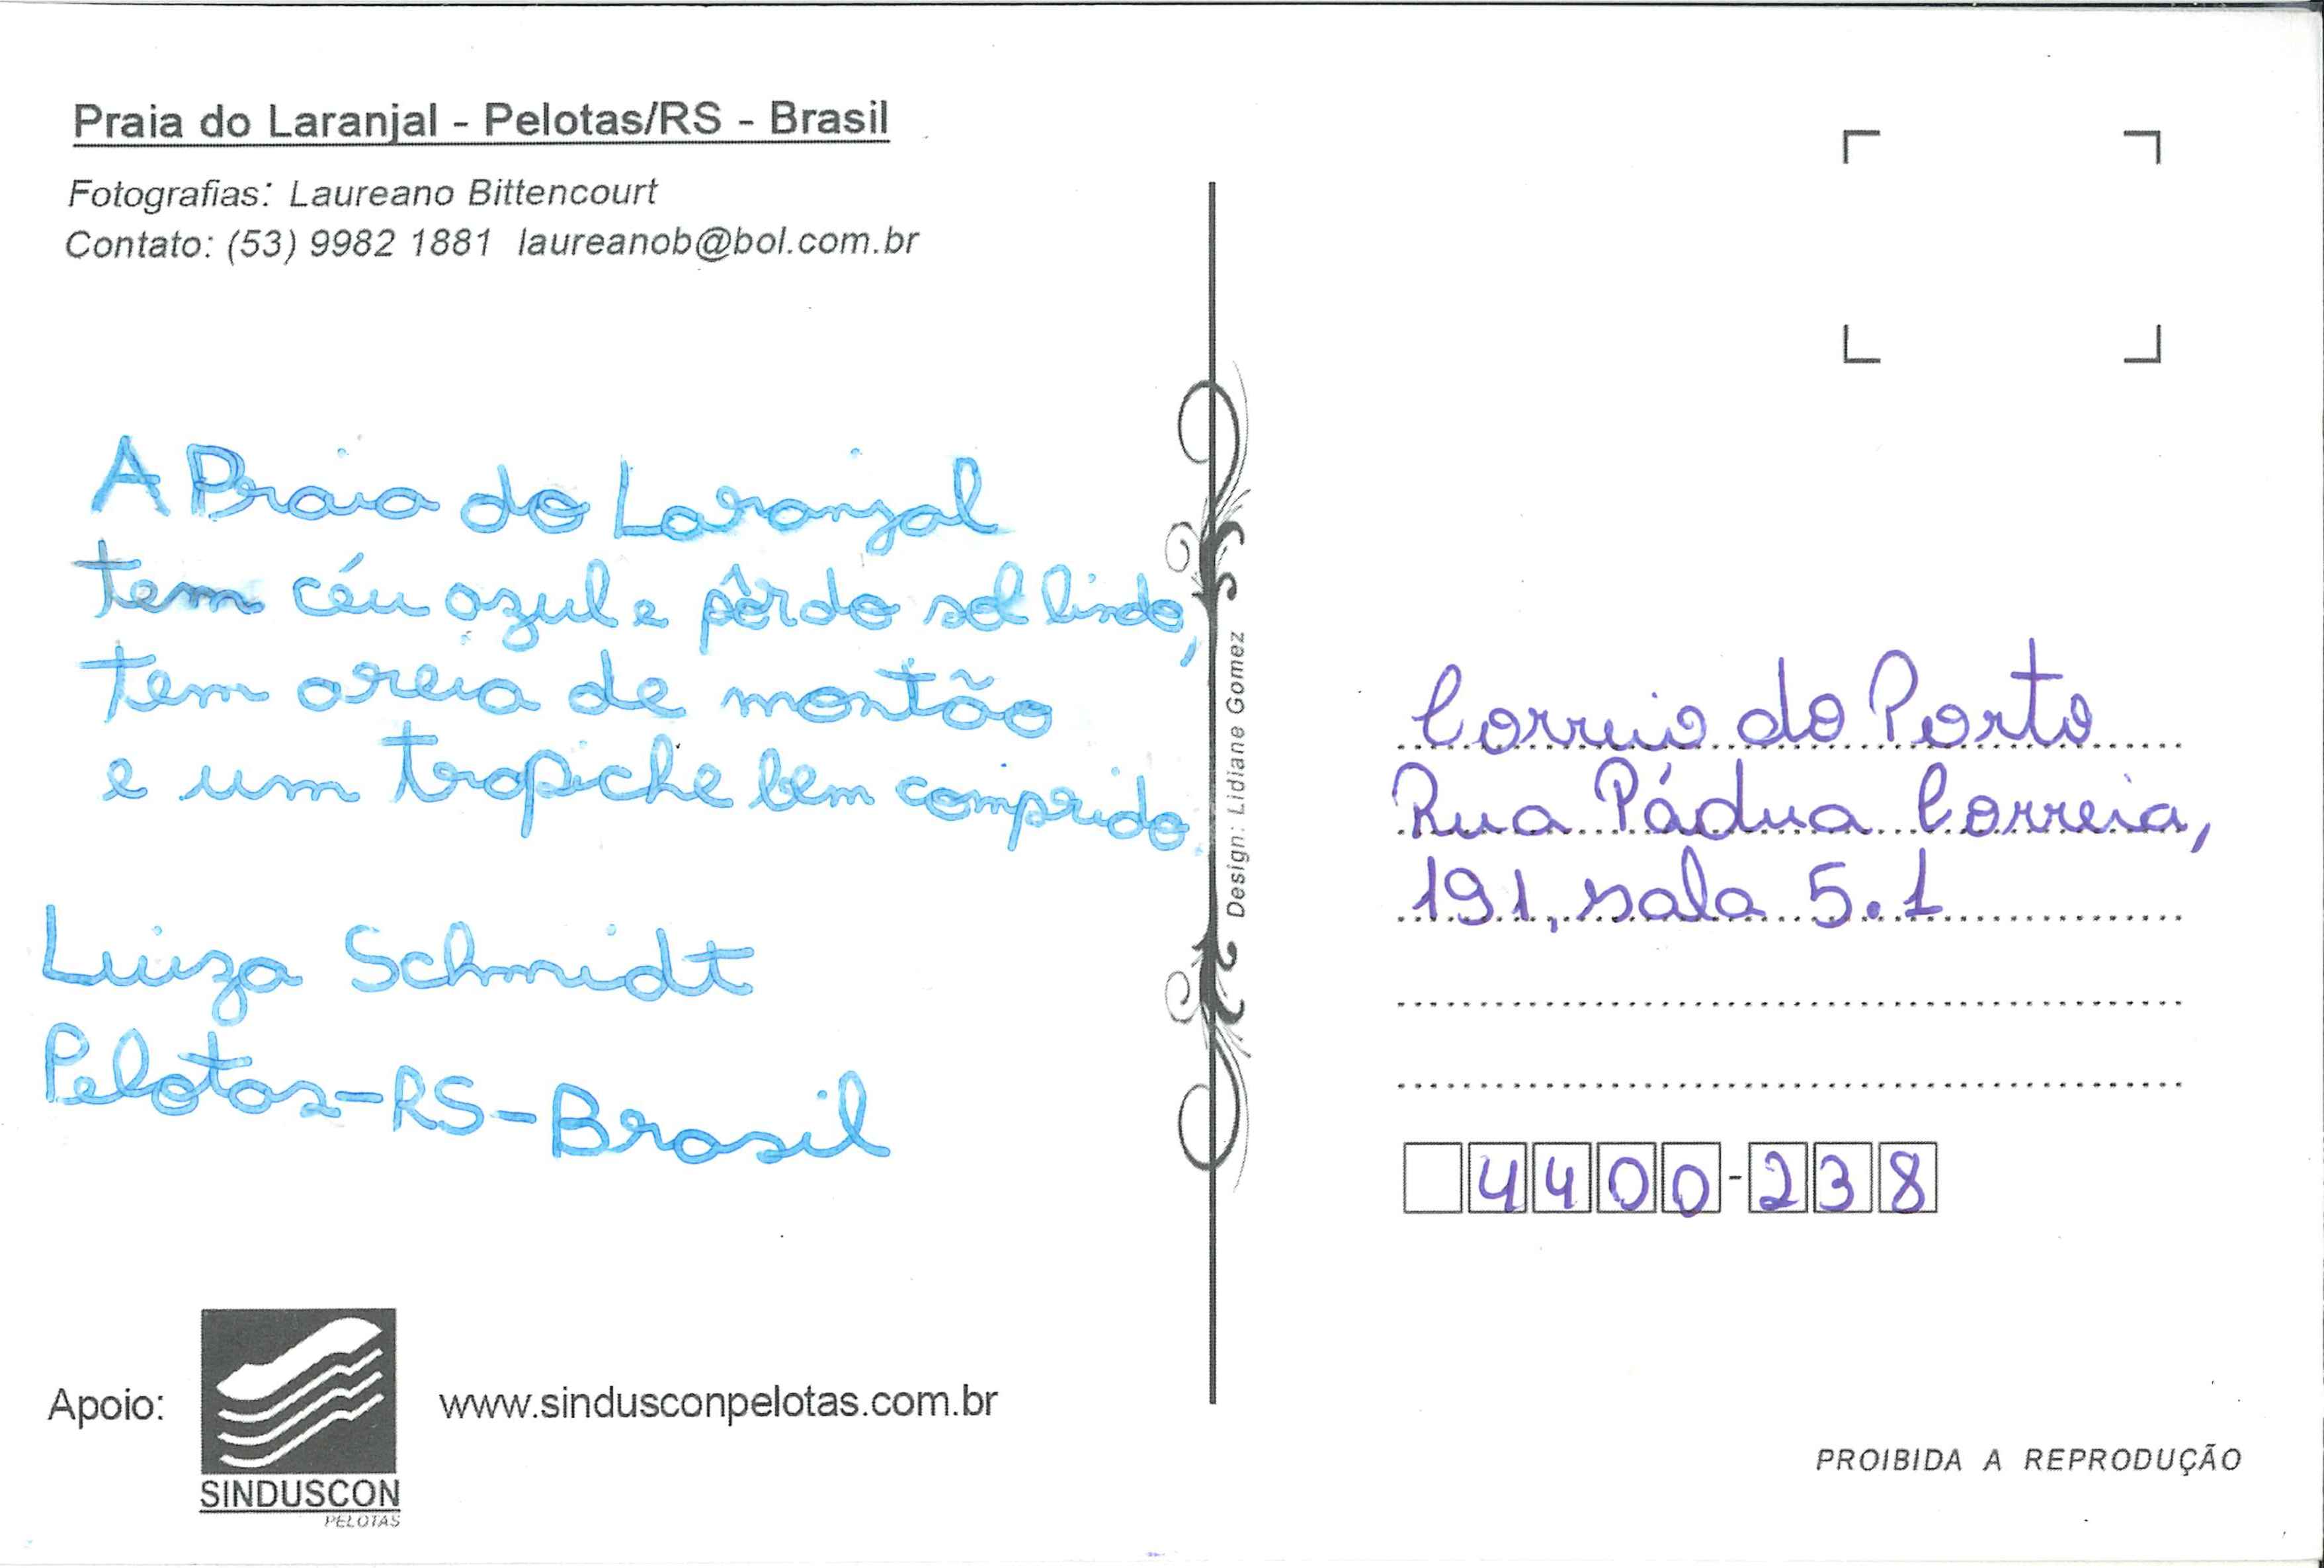 Praia do Laranjal - Pelotas/RS - Brasil
Fotografias: Laureano Bittencourt
Contato: (53) 9982 1881 laureanob@bol.com.br
A Praia do Laranjal
tem céu azul e pôr do sol lindo,
tem areia de montão
e um trapiche bem comprido.
Luiza Schmidt
Pelotas-RS-Brasil
Apoio:
SINDUSCON
PELOTAS
www.sindusconpelotas.com.br
Design: Lidiane Gomez
Correio do Porto
Rua Pádua Correia,
191, sala 5.1
4400-238
PROIBIDA A REPRODUÇÃO